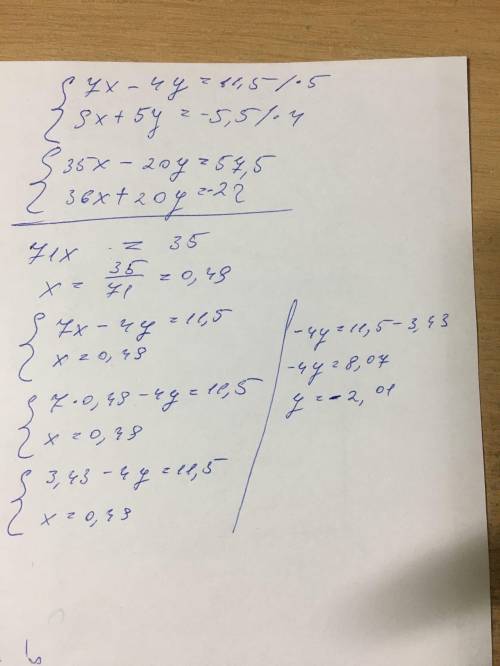 7x - 4y = 11,5 / · 5
9x + 5y = -5,5 / · 4
35x - 20y = 57,5
36x + 20y = -22
71x = 35
x = 35/71 = 0,49
7x - 4y = 11,5
x = 0,49
7 · 0,49 - 4y = 11,5
x = 0,49
3,43 - 4y = 11,5
x = 0,49
-4y = 11,5 - 3,43
-4y = 8,07
y = -2,01